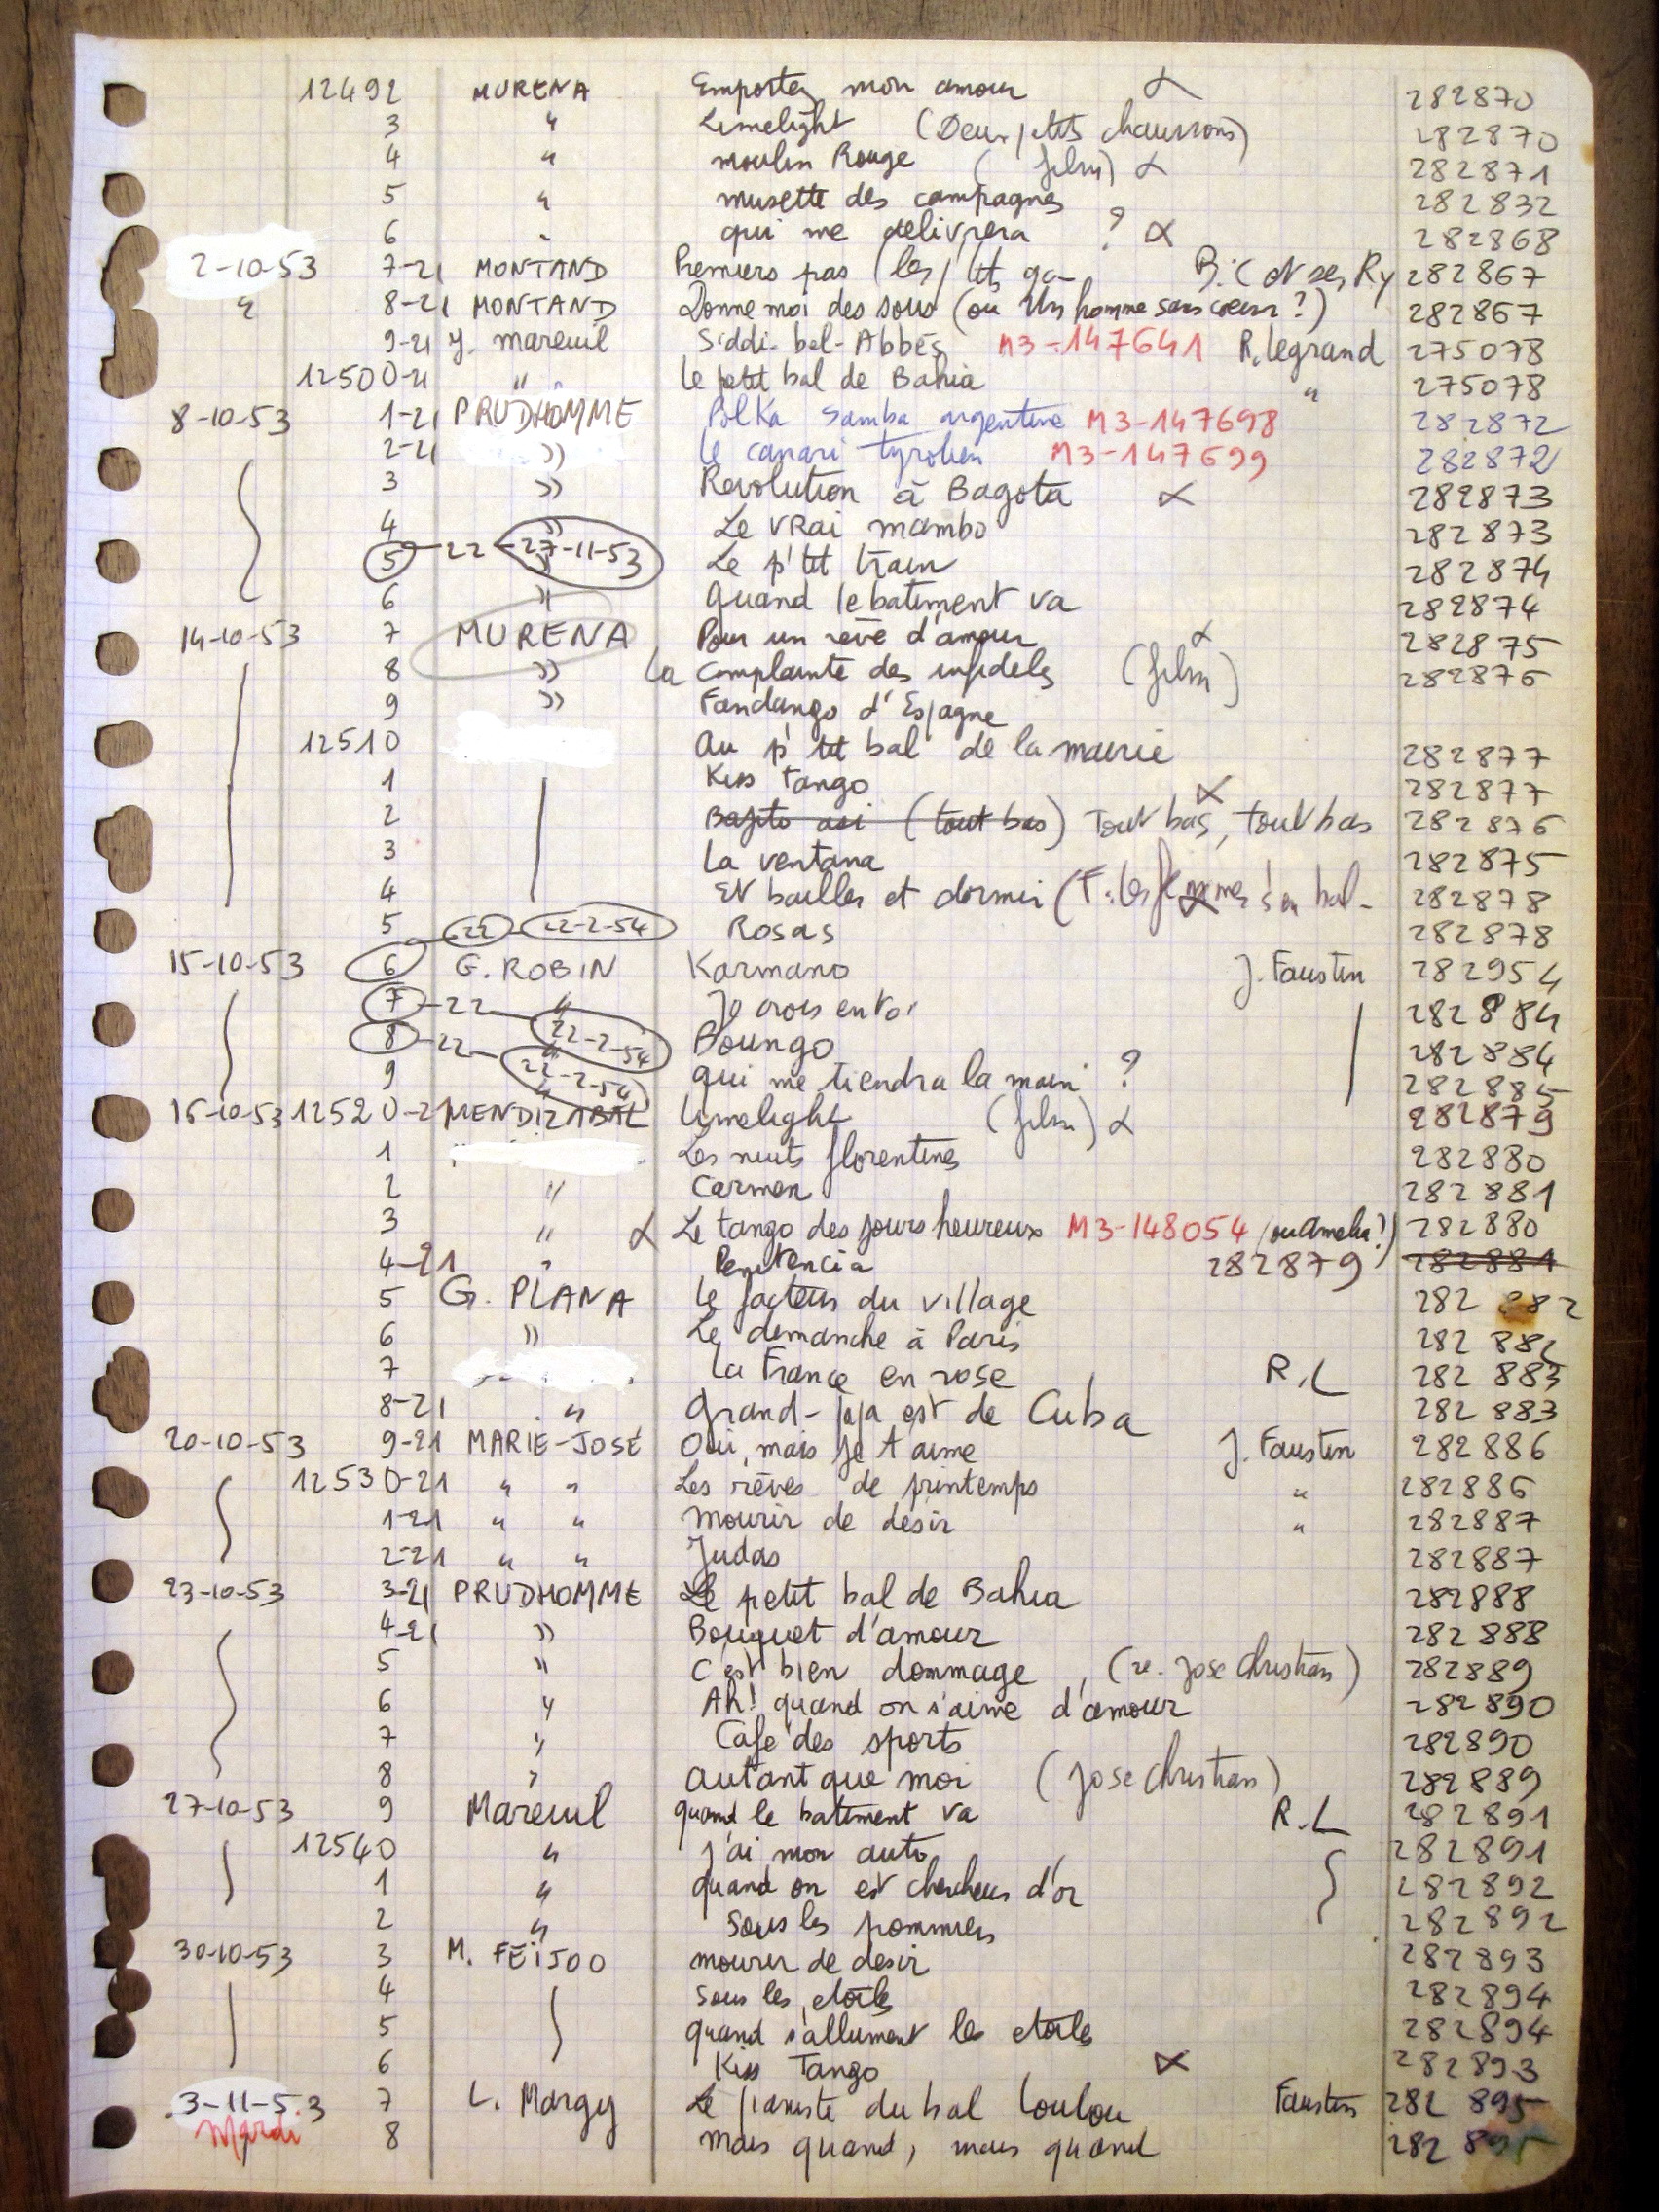 12492 MURENA Emportez mon amour α 282870
3 " Limelight (Deux ptits chaussons) 282870
4 " moulin Rouge (film) α 282871
5 " musette des campagnes 282832
6 " qui me delivrera ? α 282868
2-10-53 7-21 MONTAND Premiers pas (les ptits ga- B. C et ses Ry 282867
" 8-21 MONTAND Donne moi des sous (ou Un homme sans coeur ?) 282867
9-21 J. mareuil Siddi-bel-Abbès M3-147641 R. Legrand 275078
12500-21 " " Le petit bal de Bahia " 275078
8-10-53 1-21 PRUDHOMME Polka Samba argentine M3-147698 282872
2-21 » Le canari tyrolien M3-147699 282872
3 » Revolution à Bagota α 282873
4 » Le VRai mambo 282873
5 - 22 - 27-11-53 » Le p'tit train 282874
6 » Quand le batiment va 282874
14-10-53 7 MURENA Pour un rêve d'amour α 282875
8 » La complainte des infidels (film) 282876
9 » Fandango d'Espagne
12510 au p'tit bal de la mairie 282877
1 Kiss Tango 282877
2 (tout bas) Tout bas, tout bas α 282876
3 La ventana 282875
4 Et bailles et dormir 282878
5 22 22-2-54 Rosas 282878
15-10-53 6 G. ROBIN Karmano J. Faustin 282954
7 - 22 " Je crois en toi 282884
8 - 22 - 22-2-54 " Boungo 282884
9 22-2-54 " qui me tiendra la main ? 282885
16-10-53 12520-2 MENDIZABAL Limelight (film) α 282879
1 " Les nuits florentines 282880
2 " Carmen 282881
3 " α Le tango des jours heureux M3-148054 (ou Amelia ?) 282880
4-21 " Penitencia 282879 282881
5 G. PLANA Le facteur du village 282 882
6 » Le dimanche à Paris 282 882
7 La France en rose R.L 282 883
8-21 " Grand-papa est de Cuba 282 883
20-10-53 9-21 MARIE-JOSÉ Oui, mais je t'aime J. Faustin 282886
12530-21 " " Les rêves de printemps " 282886
1-21 " " mourir de désir " 282887
2-21 " " Judas 282887
23-10-53 3-21 PRUDHOMME Le petit bal de Bahia 282888
4-21 » Bouquet d'amour 282888
5 » C'est bien dommage (re. Jose Christian) 282889
6 " Ah! quand on s'aime d'amour 282890
7 " Café des sports 282890
8 " autant que moi (Jose Christian) 282889
27-10-53 9 Mareuil quand le batiment va R.L 282891
12540 " J'ai mon auto 282891
1 " quand on est chercheur d'or 282892
2 " Sous les pommiers 282892
30-10-53 3 M. FEIJOO mourir de desir 282893
4 sous les etoiles 282894
5 quand s'allument les etoiles 282894
6 Kiss Tango α 282893
3-11-53 7 L. Margy Le pianiste du bal Loulou Faustin 282 895
Mardi 8 mais quand, mais quand 282 895